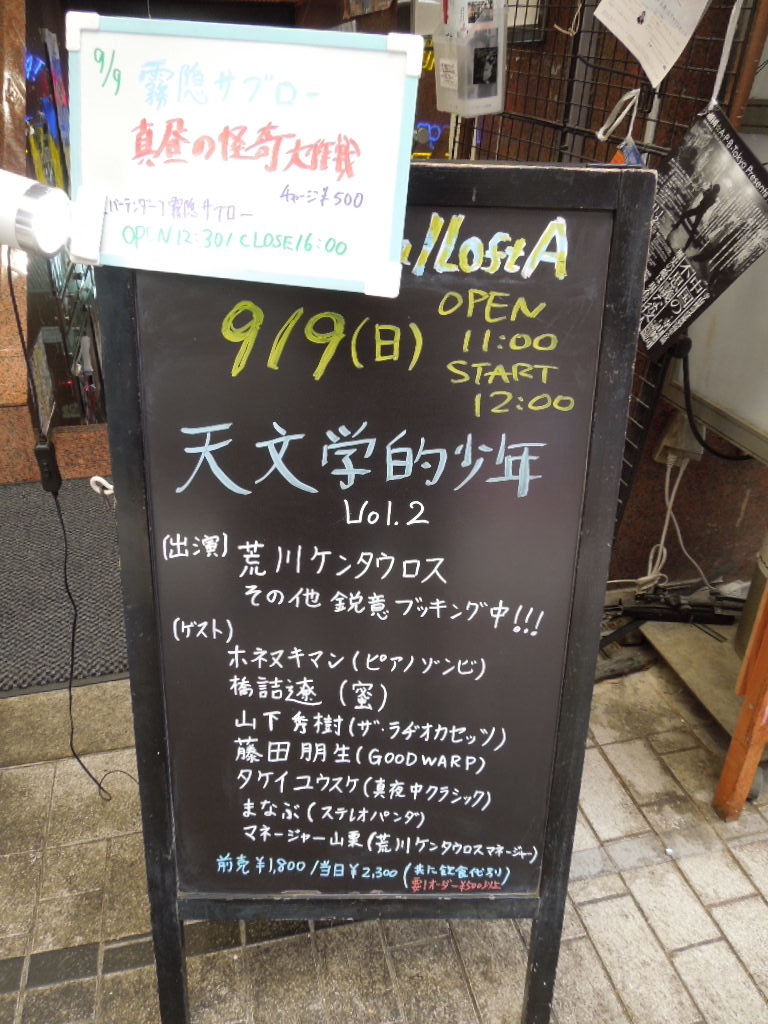 9/9
霧隠サブロー
真昼の怪奇大作戦
チャージ¥500
バーテンダー 霧隠サブロー
OPEN 12:30/CLOSE16:00
/Loft A
9/9(日)
OPEN
11:00
START
12:00
天文学的少年
Vol.2
(出演) 荒川ケンタウロス
その他 鋭意ブッキング中!!!
(ゲスト)
ホネヌキマン(ピアノゾンビ)
橋詰遼 (蜜)
山下秀樹(ザ・ラヂオカセッツ)
藤田朋生(GOOD WARP)
タケイユウスケ(真夜中クラシック)
まなぶ(ステレオパンダ)
マネージャー山栗(荒川ケンタウロスマネージャー)
前売¥1,800/当日¥2,300(共に飲食代別)
要1オーダー¥500以上
A.P.B.Tokyo Presents